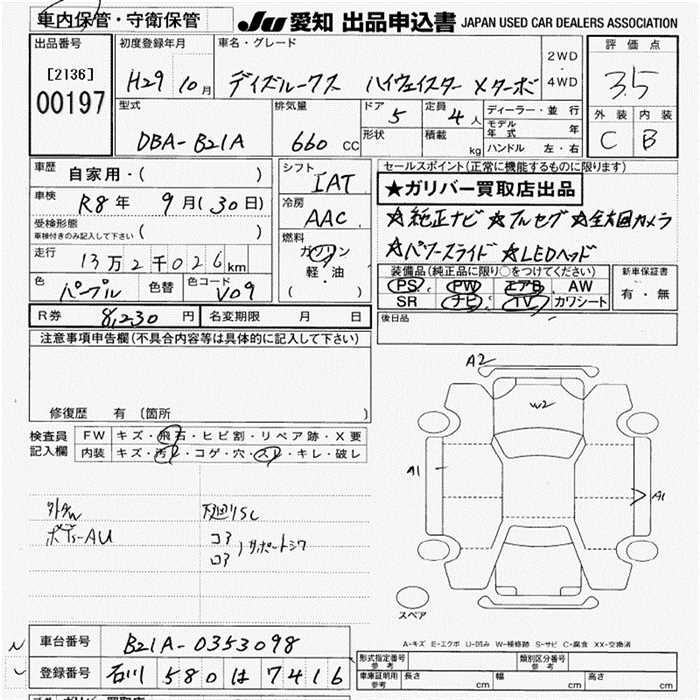 車内保管・守衛保管
JU 愛知 出品申込書 JAPAN USED CAR DEALERS ASSOCIATION
出品番号
[2136]
00197
初度登録年月
H29 10月
車名・グレード
デイズルークス ハイウェイスター Xターボ
2WD
4WD
評価点
3.5
型式
DBA-B21A
排気量
660 CC
ドア
5
定員
4人
形状
積載
kg
ディーラー・並行
モデル年式 年
ハンドル 左・右
外装 内装
C B
車歴
自家用・( )
車検
R8年 9月(30日)
受検形態
車検付きのみ記入して下さい ( )
走行
13万2千026km
色
パープル
色替
色コード
V09
シフト
IAT
冷房
AAC
燃料
ガソリン
軽・油
( )
セールスポイント(正常に機能するものに限ります)
★ガリバー買取店出品
☆純正ナビ ☆フルセグ ☆全方囲カメラ
☆パワースライド ☆LEDヘッド
装備品(純正品に限り○をつけてください)
PS PW エアB AW
SR ナビ TV カワシート
新車保証書
有・無
後日品
R券 8,230円 名変期限 月 日
注意事項申告欄(不具合内容等は具体的に記入して下さい)
修復歴 有(箇所 )
検査員記入欄
FW キズ・飛石・ヒビ割・リペア跡・X要
内装 キズ・汚レ・コゲ・穴・スレ・キレ・破レ
下廻りSC
コア
ロア
サポートシワ
A2
W2
A1
A1
スペア
A-キズ E-エクボ U-凹み W-補修跡 S-サビ C-腐食 XX-交換済
車台番号 B21A-0353098
登録番号 石川 580 は 7416
形式指定番号 参考
類別区分番号 参考
車庫証明用 参考
長さ cm 幅 cm 高さ cm